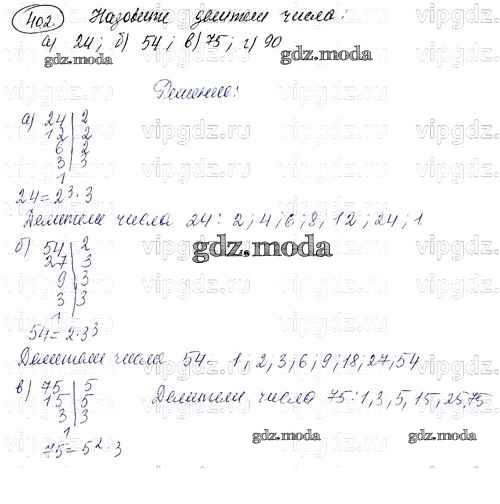 402 Назовите делители числа:
а) 24; б) 54; в) 75; г) 90
gdz.moda
gdz.moda
Решение:
vipgdz.ru
vipgdz.ru
а) 24 | 2
12 | 2
6 | 2
3 | 3
1
24=2³·3
Делители числа 24: 2;4;6;8,12;24;1
б) 54 | 2
27 | 3
9 | 3
3 | 3
1
gdz.moda
54=2·3³
Делители числа 54- 1;2;3;6;9;18;27,54
в) 75 | 5
15 | 5
3 | 3
1
75=5²·3
Делители числа 75:1,3,5,15,25,75
gdz.moda
gdz.moda